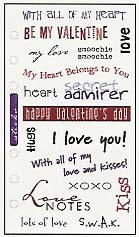 WITH ALL OF MY HEART
BE MY VALENTINE
my love
smoochie
smoochie
love
My Heart Belongs to You
secret
heart admirer
happy valentine's day
stickos
SMOH
I love you!
With all of my
love and kisses!
xoxo
Love
NOTES
Kiss
lots of love
S.W.A.K.